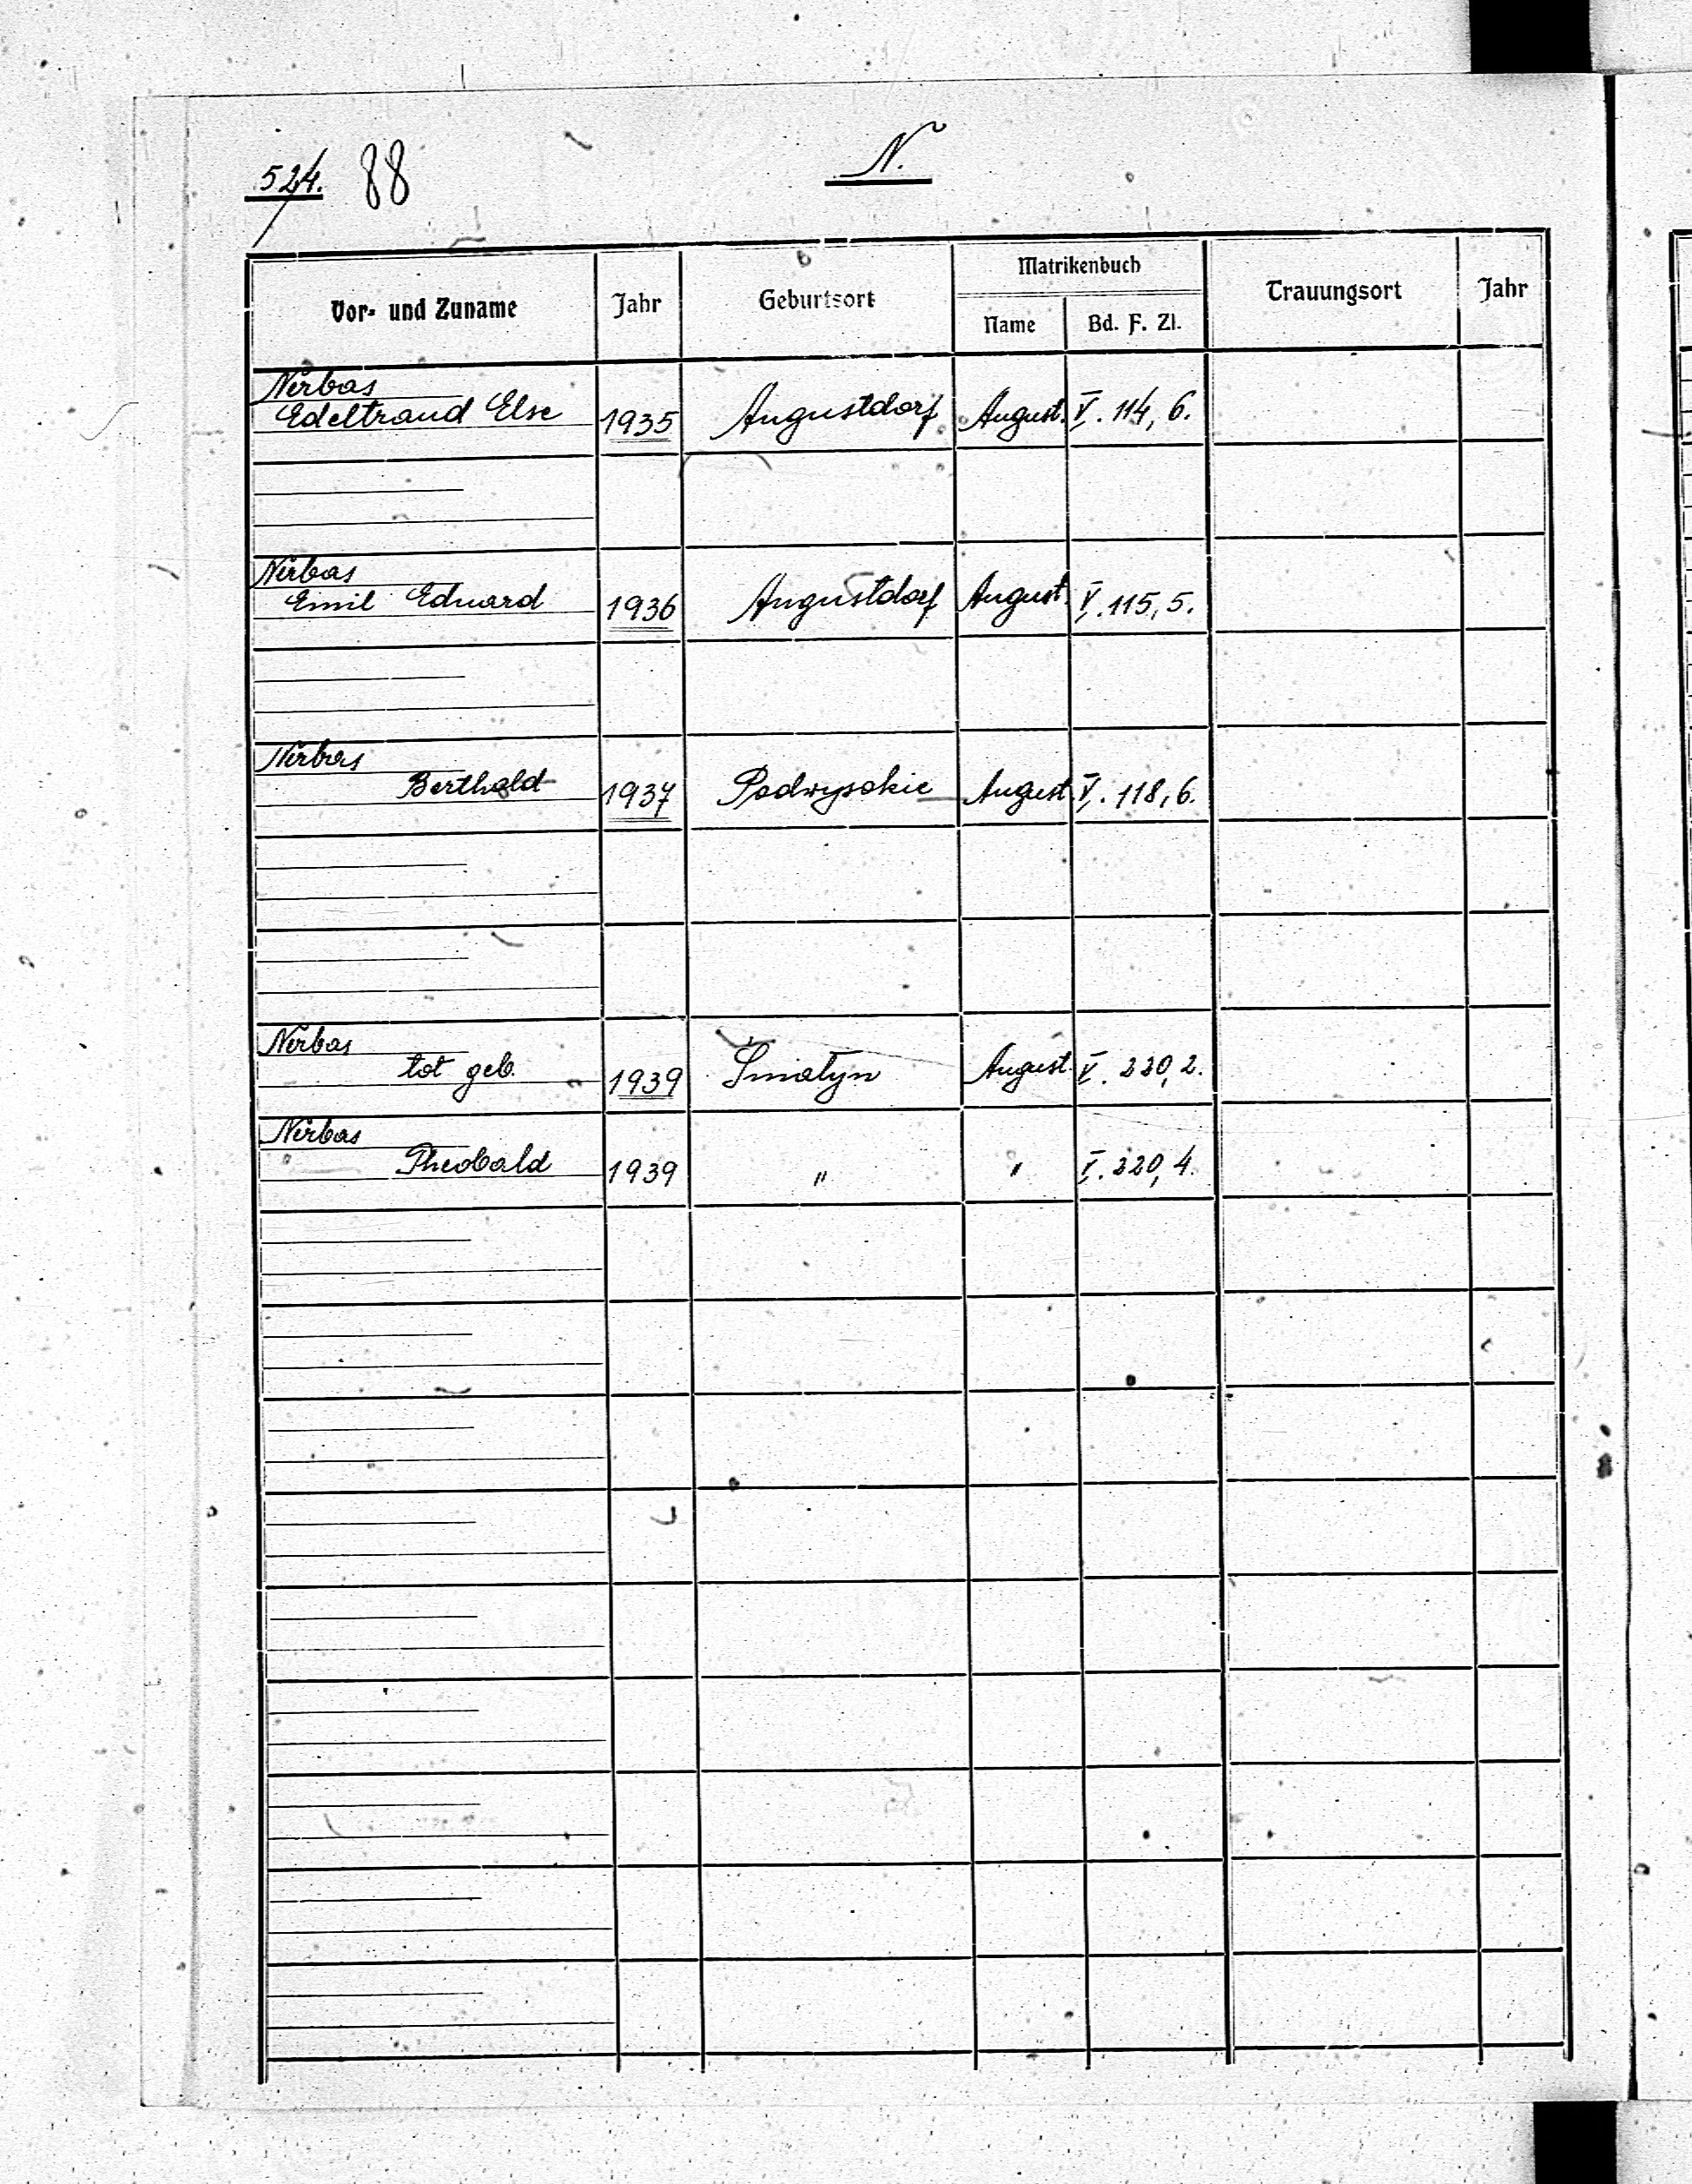 524. 88
N.
Vor- und Zuname Jahr Geburtsort Matrikenbuch Trauungsort Jahr
Name Bd. F. Zl.
Nerbas
Edeltraud Else 1935 Augustdorf August. V. 114, 6.
Nerbas
Emil Eduard 1936 Augustdorf August. V. 115, 5.
Nerbas
Berthold 1937 Podwysokie August. V. 118, 6.
Nerbas
tot geb. 1939 Śniatyn August. V. 220, 2.
Nerbas
Theobald 1939 " " V. 220, 4.